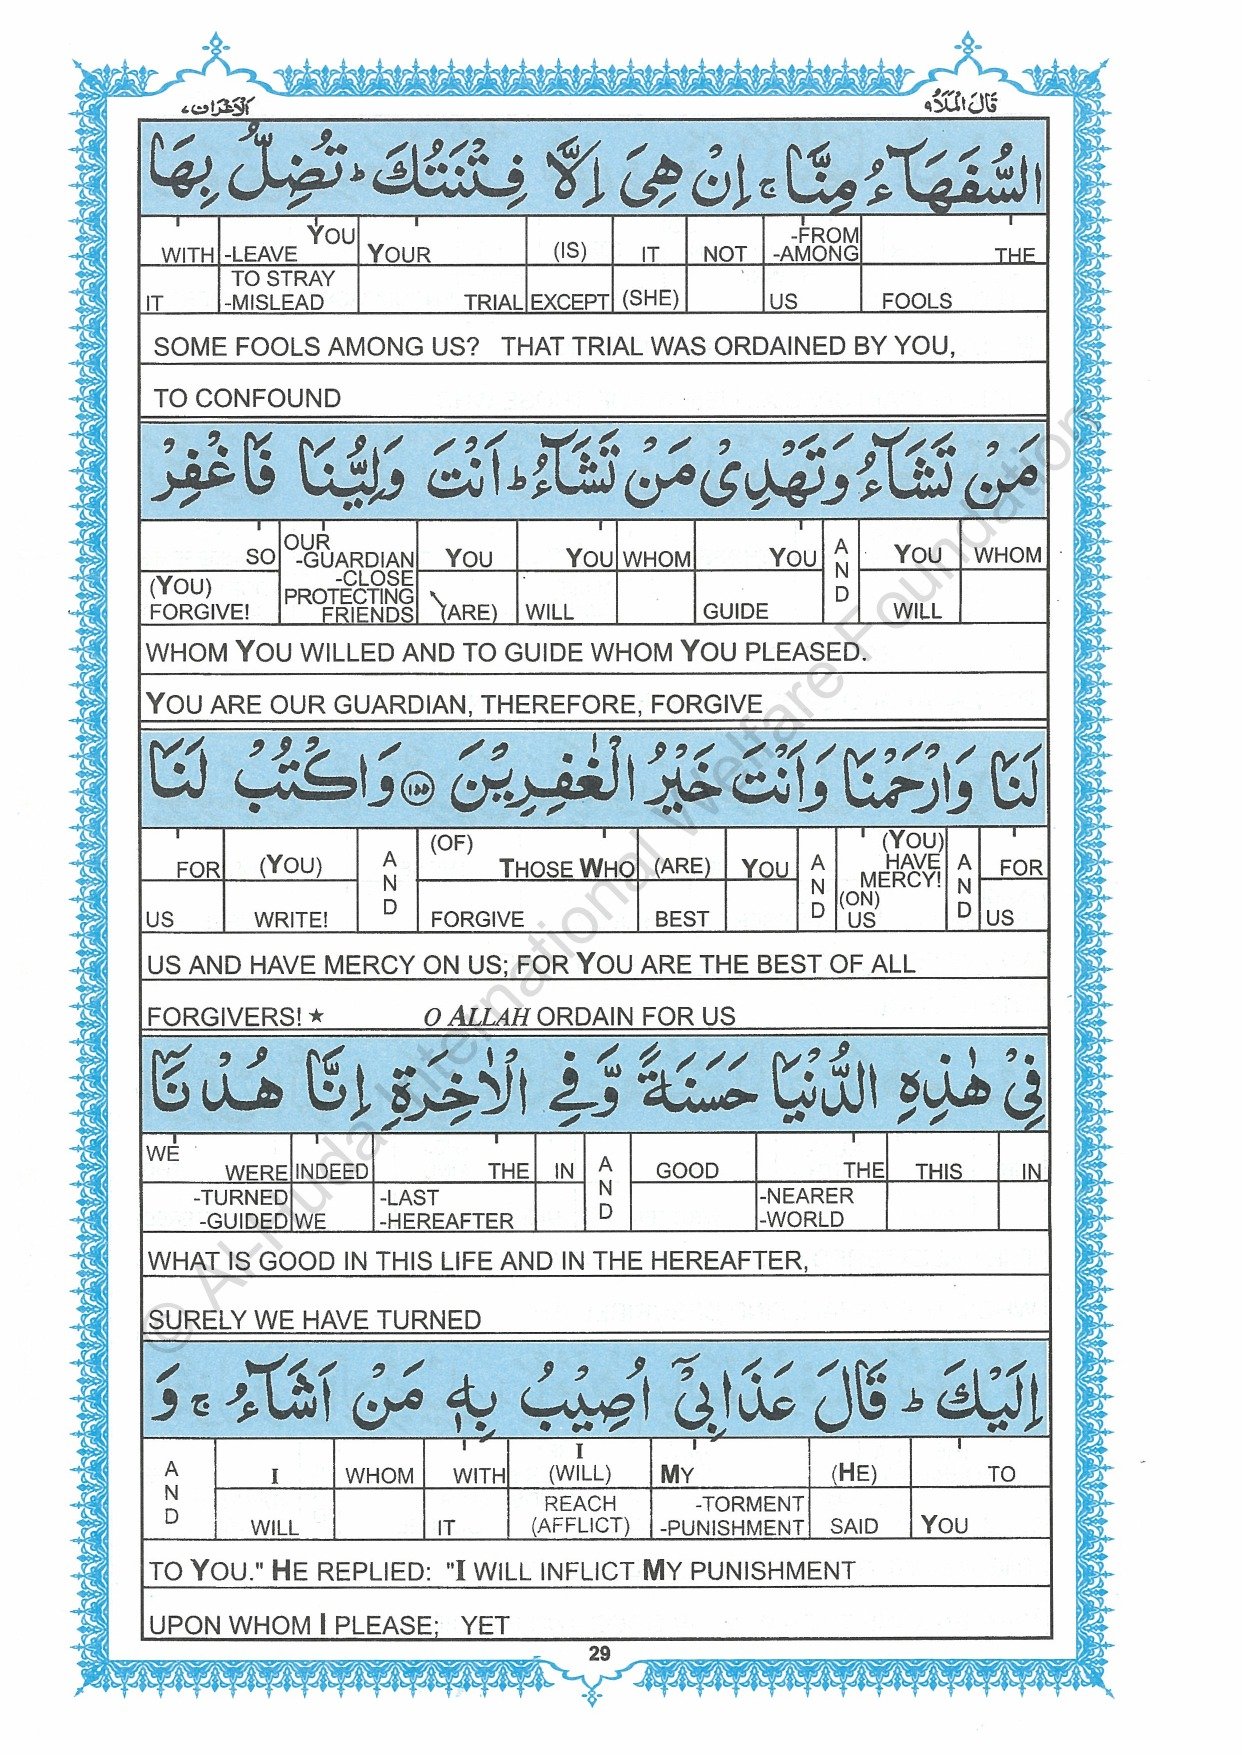 الاعراف ٧
قَالَ الْمَلَاُ ٩
السُّفَهَآءُ مِنَّا ۚ اِنْ هِیَ اِلَّا فِتْنَتُكَ ؕ تُضِلُّ بِهَا
WITH -LEAVE YOU YOUR (IS) IT NOT -FROM -AMONG THE
IT TO STRAY -MISLEAD TRIAL EXCEPT (SHE) US FOOLS
SOME FOOLS AMONG US? THAT TRIAL WAS ORDAINED BY YOU,
TO CONFOUND
مَنْ تَشَآءُ وَتَهْدِیْ مَنْ تَشَآءُ ؕ اَنْتَ وَلِیُّنَا فَاغْفِرْ
SO OUR -GUARDIAN YOU YOU WHOM YOU AND YOU WHOM
(YOU) FORGIVE! -CLOSE PROTECTING FRIENDS (ARE) WILL GUIDE WILL
WHOM YOU WILLED AND TO GUIDE WHOM YOU PLEASED.
YOU ARE OUR GUARDIAN, THEREFORE, FORGIVE
لَنَا وَارْحَمْنَا وَاَنْتَ خَیْرُ الْغٰفِرِیْنَ ١٥٥ وَاكْتُبْ لَنَا
FOR (YOU) AND (OF) THOSE WHO (ARE) YOU AND (YOU) HAVE MERCY! AND FOR
US WRITE! FORGIVE BEST (ON) US US
US AND HAVE MERCY ON US; FOR YOU ARE THE BEST OF ALL
FORGIVERS! ★ O ALLAH ORDAIN FOR US
فِیْ هٰذِهِ الدُّنْیَا حَسَنَةً وَّفِی الْاٰخِرَةِ اِنَّا هُدْنَاۤ
WE WERE INDEED THE IN AND GOOD THE THIS IN
-TURNED -GUIDED WE -LAST -HEREAFTER -NEARER -WORLD
WHAT IS GOOD IN THIS LIFE AND IN THE HEREAFTER,
SURELY WE HAVE TURNED
اِلَیْكَ ؕ قَالَ عَذَابِیْۤ اُصِیْبُ بِهٖ مَنْ اَشَآءُ ۚ وَ
AND I WHOM WITH I (WILL) MY (HE) TO
WILL IT REACH (AFFLICT) -TORMENT -PUNISHMENT SAID YOU
TO YOU." HE REPLIED: "I WILL INFLICT MY PUNISHMENT
UPON WHOM I PLEASE; YET
29
© Al-Huda International Welfare Foundation